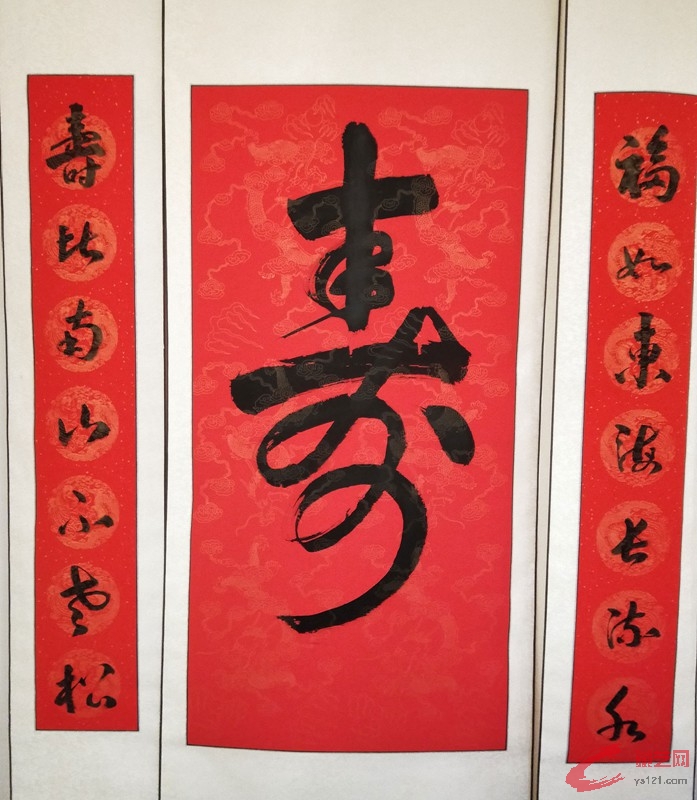 福如東海長流水
壽
壽比南山不老松
ys121.com